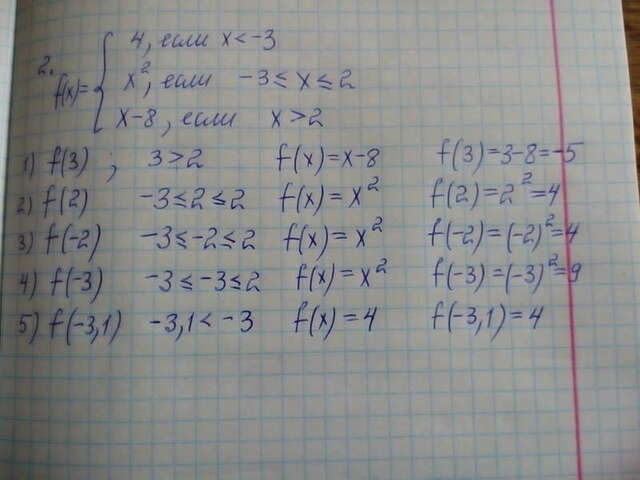 4, если x < -3
2. f(x) = x², если -3 ≤ x ≤ 2
x-8, если x > 2
1) f(3) ; 3 > 2 f(x) = x-8 f(3) = 3-8 = -5
2) f(2) -3 ≤ 2 ≤ 2 f(x) = x² f(2) = 2² = 4
3) f(-2) -3 ≤ -2 ≤ 2 f(x) = x² f(-2) = (-2)² = 4
4) f(-3) -3 ≤ -3 ≤ 2 f(x) = x² f(-3) = (-3)² = 9
5) f(-3,1) -3,1 < -3 f(x) = 4 f(-3,1) = 4